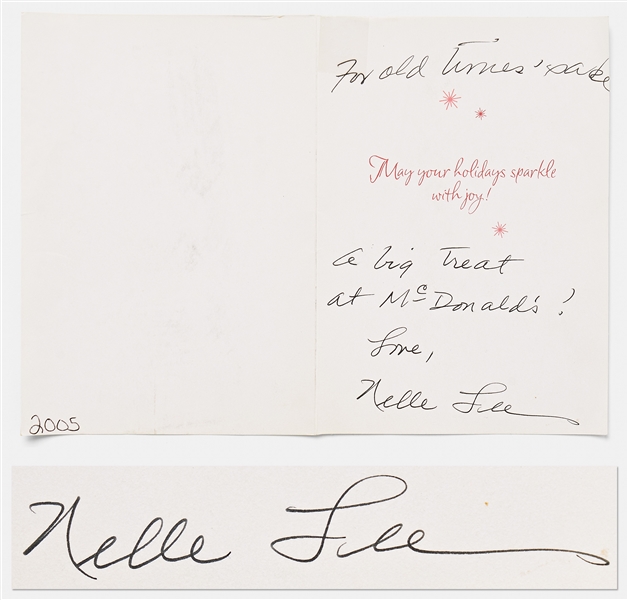 For old Times' sake
May your holidays sparkle
with joy!
a big Treat
at McDonald's!
Love,
Nelle Lee
2005
Nelle Lee